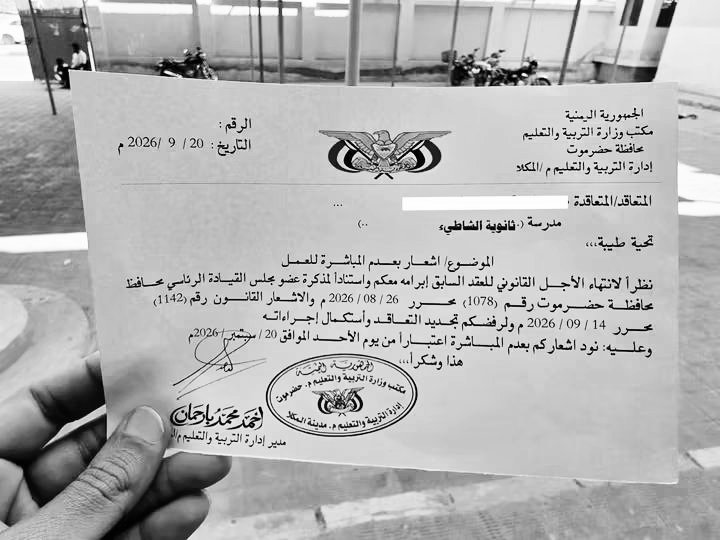 الجمهورية اليمنية
مكتب وزارة التربية والتعليم
محافظة حضرموت
إدارة التربية والتعليم م/المكلا
الرقم :
التاريخ : 20 / 9 / 2026 م
المتعاقد/المتعاقدة ...
مدرسة (. ثانوية الشاطيء ..)
تحية طيبة،،،
الموضوع/ اشعار بعدم المباشرة للعمل
نظراً لانتهاء الأجل القانوني للعقد السابق إبرامه معكم واستناداً لمذكرة عضو مجلس القيادة الرئاسي محافظ
محافظة حضرموت رقم (1078) محرر 26 / 08 / 2026 م والاشعار القانون رقم (1142)
محرر 14 / 09 / 2026 م ولرفضكم تجديد التعاقد وأستكمال إجراءاته
وعليه: نود اشعاركم بعدم المباشرة اعتباراً من يوم الأحد الموافق 20 / سبتمبر / 2026م
هذا وشكراً،،،
أحمد محمد بارحمان
مدير إدارة التربية والتعليم
الجمهورية اليمنية
مكتب وزارة التربية والتعليم م. حضرموت
إدارة التربية والتعليم م. مدينة المكلا